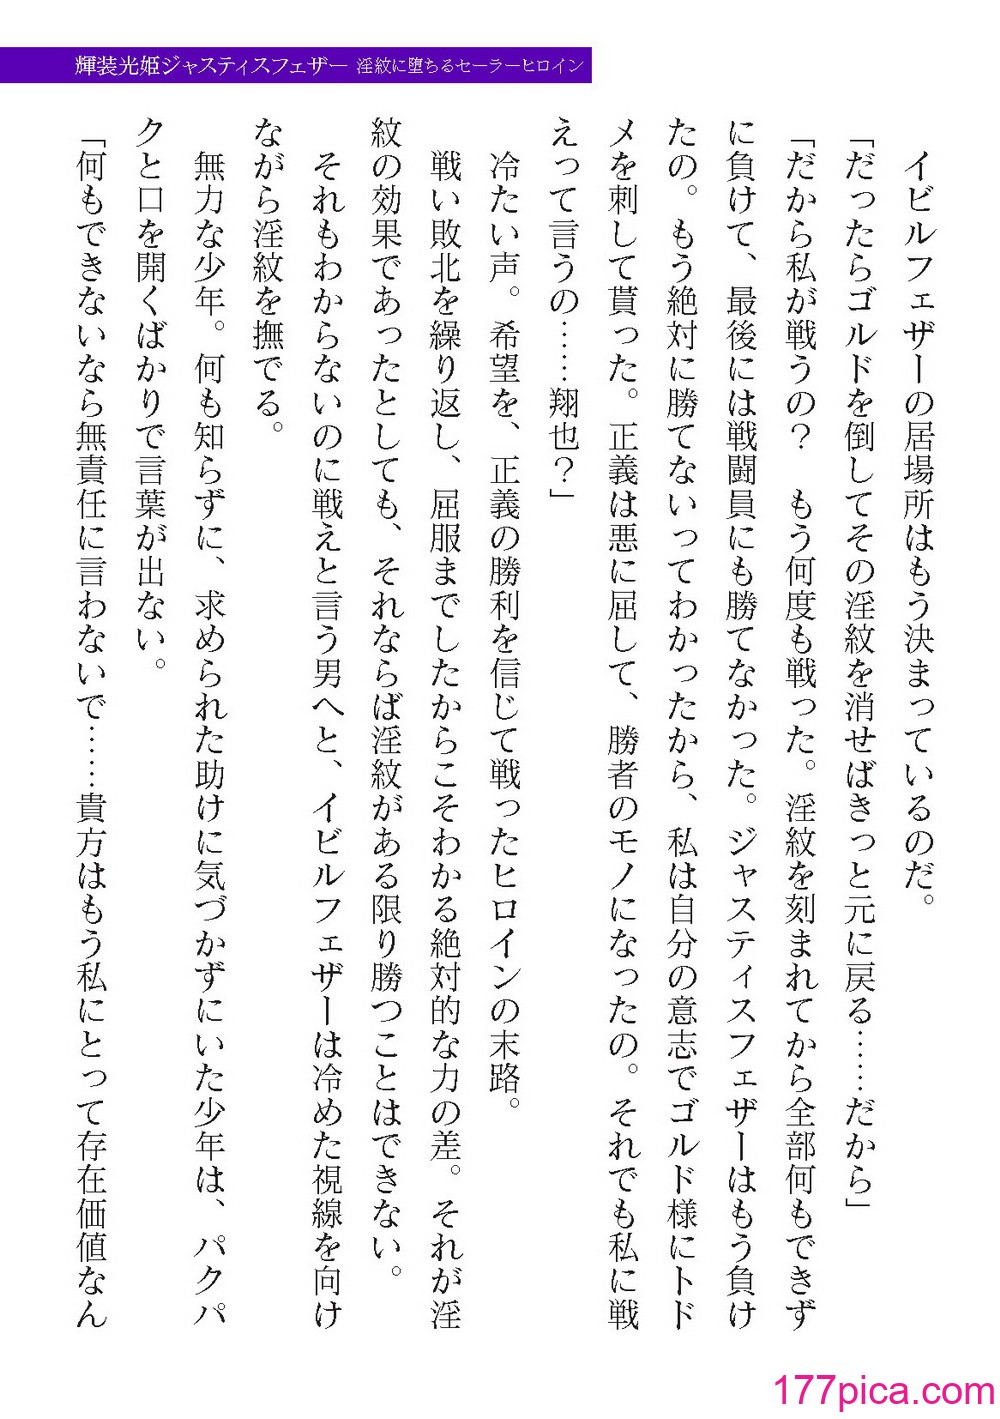 輝装光姫ジャスティスフェザー 淫紋に堕ちるセーラーヒロイン
　イビルフェザーの居場所はもう決まっているのだ。
「だったらゴルドを倒してその淫紋を消せばきっと元に戻る……だから」
「だから私が戦うの？　もう何度も戦った。淫紋を刻まれてから全部何もできず
に負けて、最後には戦闘員にも勝てなかった。ジャスティスフェザーはもう負け
たの。もう絶対に勝てないってわかったから、私は自分の意志でゴルド様にトド
メを刺して貰った。正義は悪に屈して、勝者のモノになったの。それでも私に戦
えって言うの……翔也？」
　冷たい声。希望を、正義の勝利を信じて戦ったヒロインの末路。
　戦い敗北を繰り返し、屈服までしたからこそわかる絶対的な力の差。それが淫
紋の効果であったとしても、それならば淫紋がある限り勝つことはできない。
　それもわからないのに戦えと言う男へと、イビルフェザーは冷めた視線を向け
ながら淫紋を撫でる。
　無力な少年。何も知らずに、求められた助けに気づかずにいた少年は、パクパ
クと口を開くばかりで言葉が出ない。
「何もできないなら無責任に言わないで……貴方はもう私にとって存在価値なん
177pica.com